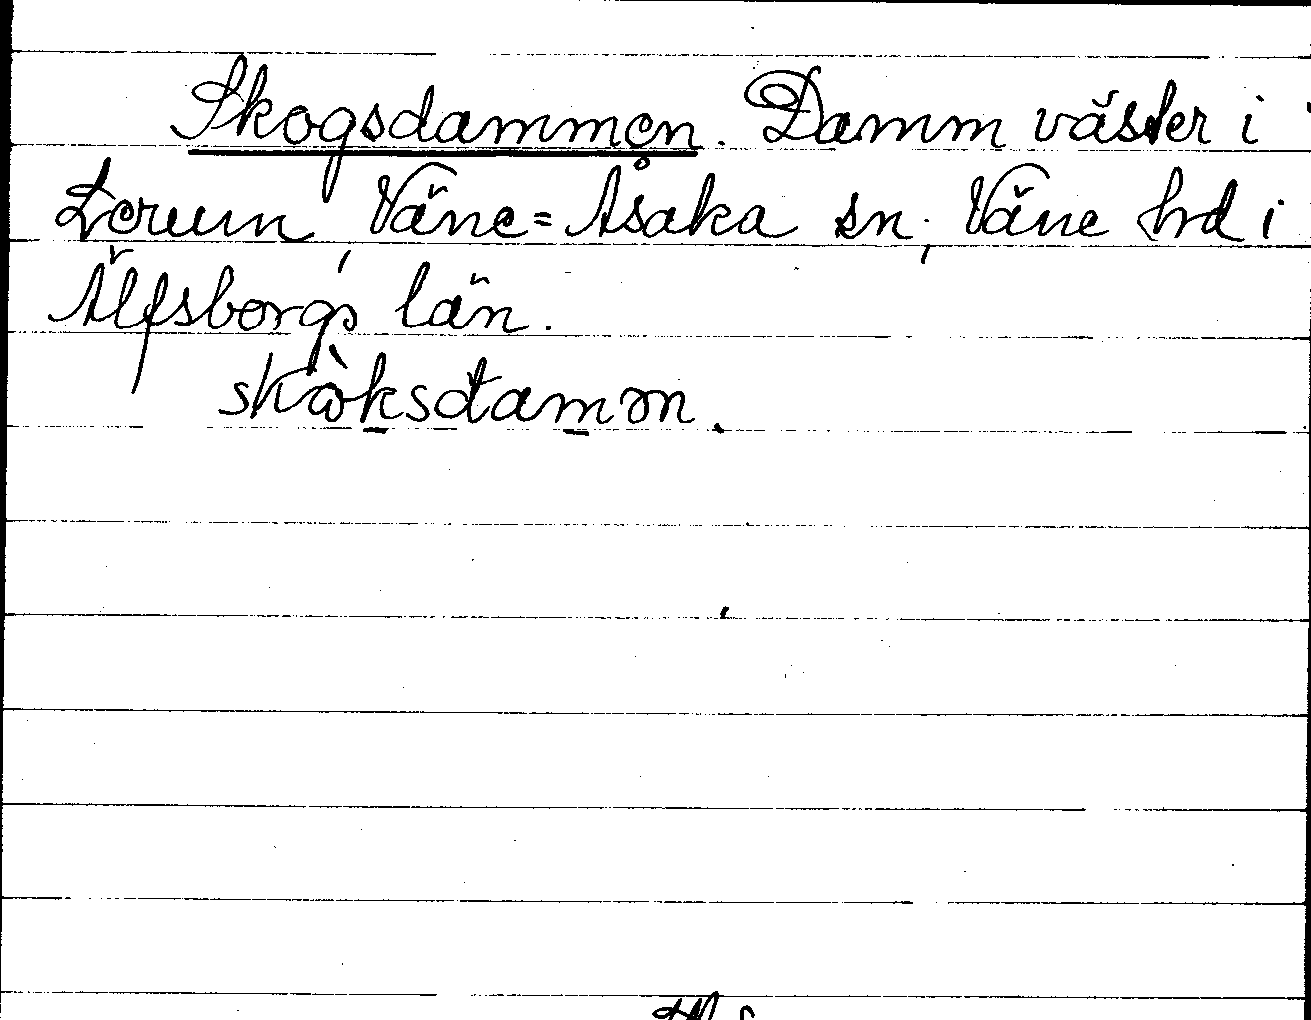 Skogsdammen. Damm väster i
Lerum, Väne=Åsaka sn, Väne hd i
Älfsborgs län.
skòksdamm.